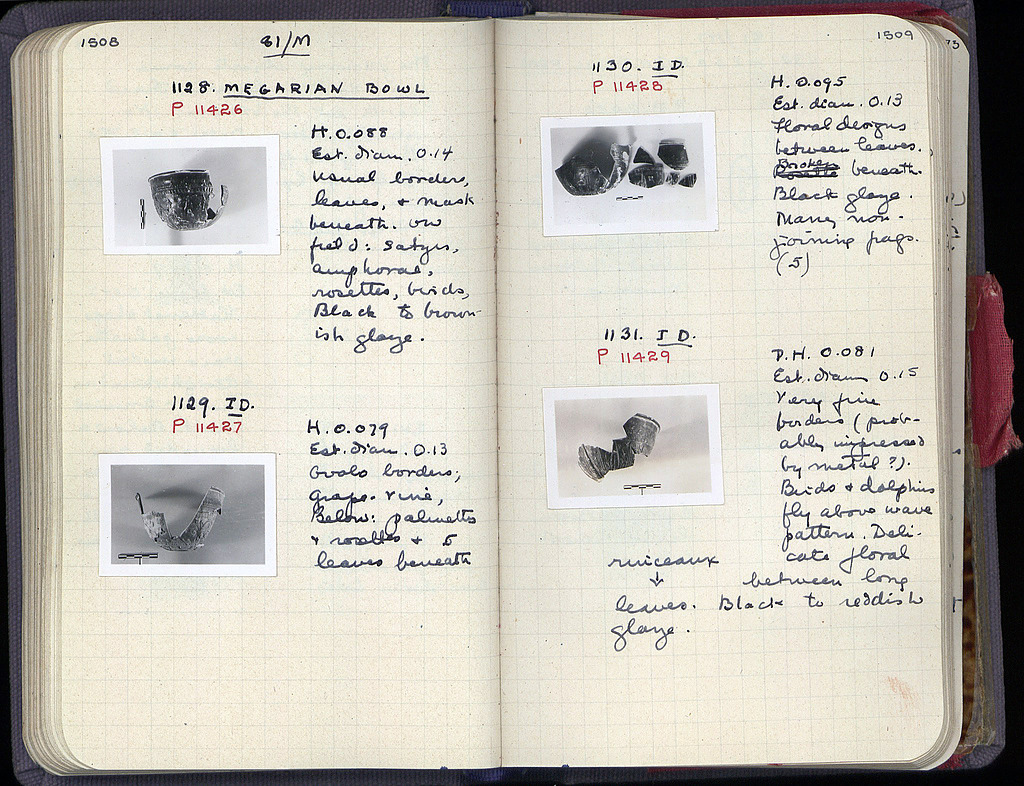 1508
81/M
1128. MEGARIAN BOWL
P 11426
H. 0.088
Est. diam. 0.14
Usual borders,
leaves, + mask
beneath. On
field: satyrs,
amphorae,
rosettes, birds,
Black to brown-
ish glaze.
1129. ID.
P 11427
H. 0.079
Est. diam. 0.13
Ovolo borders;
grape-vine,
Below: palmettes
+ rosettes + 5
leaves beneath
1509
1130. ID.
P 11428
H. 0.095
Est. diam. 0.13
Floral designs
between leaves.
Broken
beneath.
Black glaze.
Many non-
joining frags.
(5)
1131. ID.
P 11429
P.H. 0.081
Est. diam 0.15
Very fine
borders (prob-
ably impressed
by metal?).
Birds + dolphins
fly above wave
pattern. Deli-
cate floral
rinceaux
between long
leaves. Black to reddish
glaze.
73